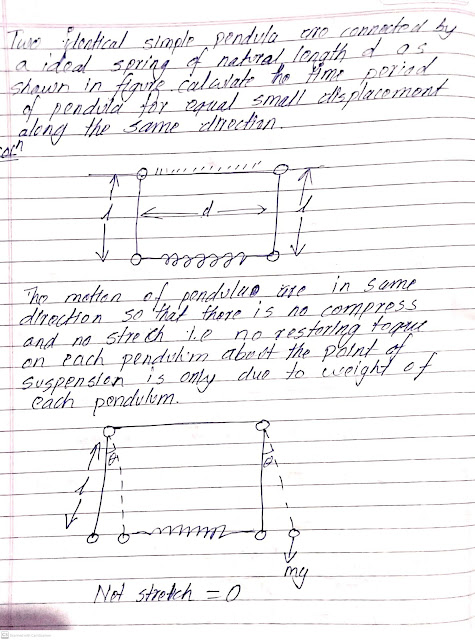 Two identical simple pendula are connected by
a ideal spring of natural length d as
shown in figure calculate the time period
of pendula for equal small displacement
along the same direction.
Solⁿ
l d l
The motion of pendulum are in same
direction so that there is no compress
and no stretch i.e no restoring torque
on each pendulum about the point of
suspension is only due to weight of
each pendulum.
l θ θ
mg
Net stretch = 0